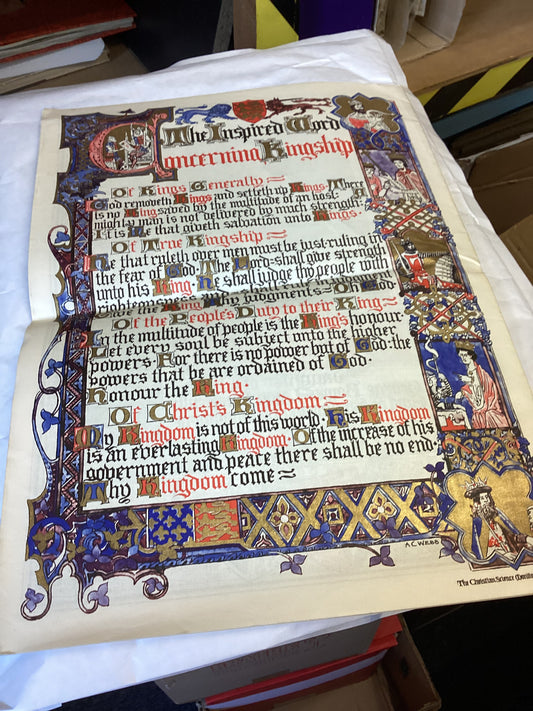 The Inspired Word
Concerning Kingship
Of Kings Generally
God removeth Kings and setteth up Kings. There
is no King saved by the multitude of an host: A
mighty man is not delivered by much strength:
It is He that giveth salvation unto Kings.
Of True Kingship
He that ruleth over men must be just·ruling in
the fear of God. The Lord·shall give strength
unto his King·He shall judge thy people with
the King Thy judgments Oh God
Of the People's Duty to their King
In the multitude of people is the King's honour.
Let every soul be subject unto the higher
powers·For there is no power but of God: the
powers that be are ordained of God·
Honour the King·
Of Christ's Kingdom
My Kingdom is not of this world·His Kingdom
is an everlasting Kingdom·Of the increase of his
government and peace there shall be no end.
Thy Kingdom come
A.C. WEBB
The Christian Science